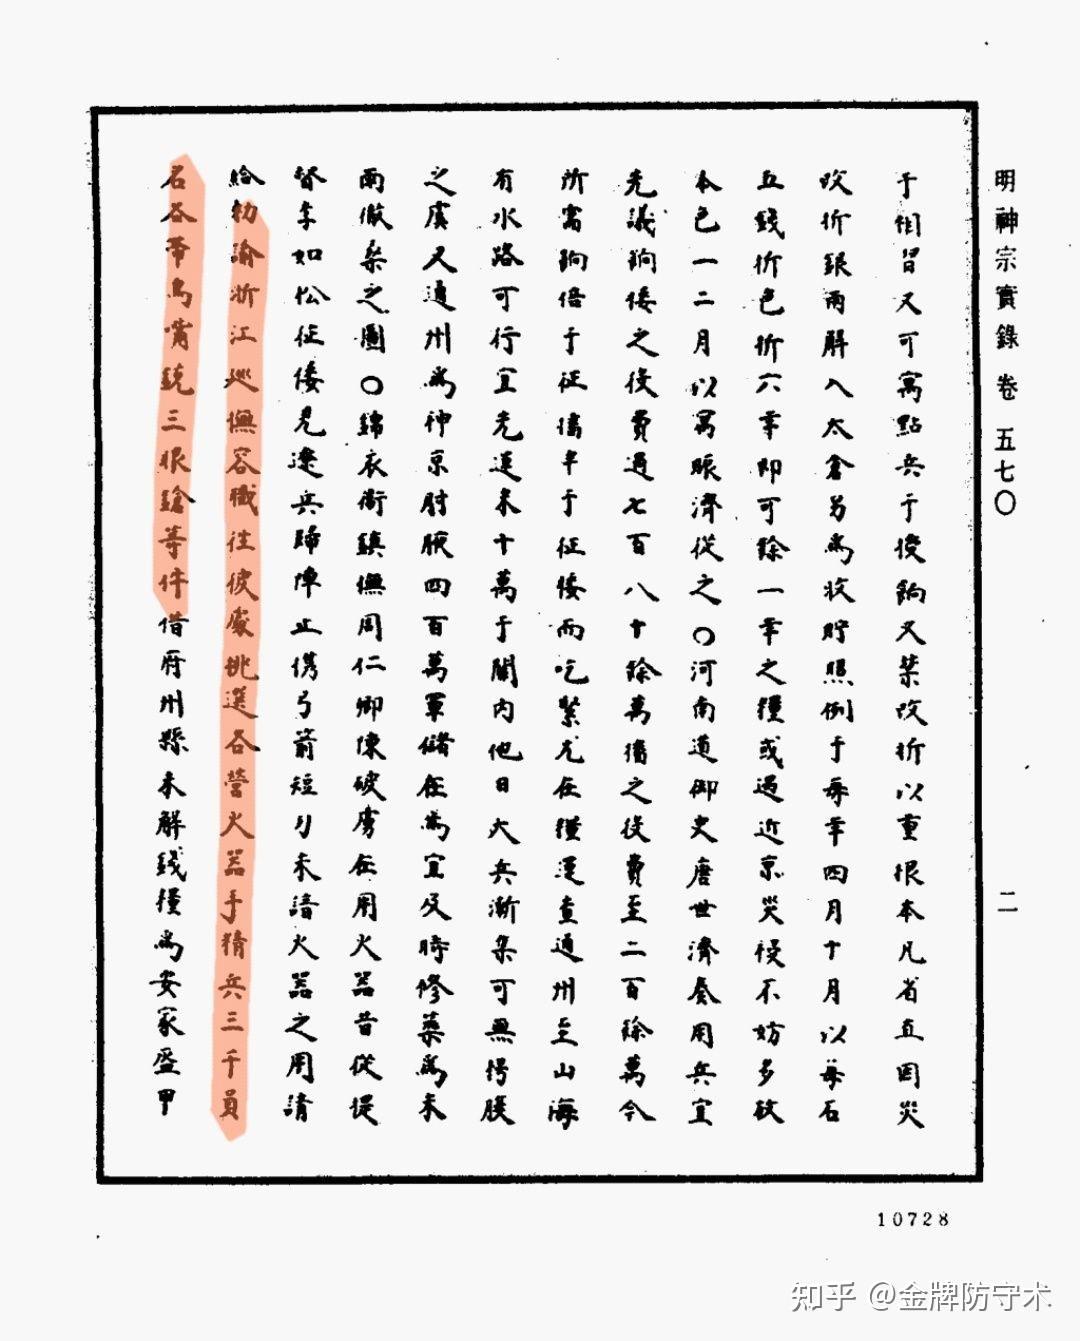 明神宗實錄 卷五七〇 二
于相習又可寓點兵于授餉又禁改折以重根本凡省直因災
改折銀兩解入太倉另為收貯照例于每年四月十月以每石
五錢折色折六年即可餘一年之糧或過近京災祲不妨多放
本色一二月以寓賑濟從之〇河南道御史唐世濟奏用兵宜
先議餉倭之役費過七百八十餘萬播之役費至二百餘萬今
所需餉倍于征播半于征倭而吃緊尤在糧運查通州至山海
有水路可行宜先運米十萬于關內他日大兵漸集可無愕腋
之虞又通州為神京肘腋四百萬軍儲在焉宜及時修築為未
雨徹桑之圖〇錦衣衛鎮撫周仁卿陳破虜在用火器昔從提
督李如松征倭見遼兵歸陣止携弓箭短刀未諳火器之用請
給勑諭浙江巡撫容職往彼處挑選各營火器手精兵三千員
名各帶鳥嘴銃三眼鎗等件借府州縣未解錢糧為安家盔甲
10728
知乎 @金牌防守术